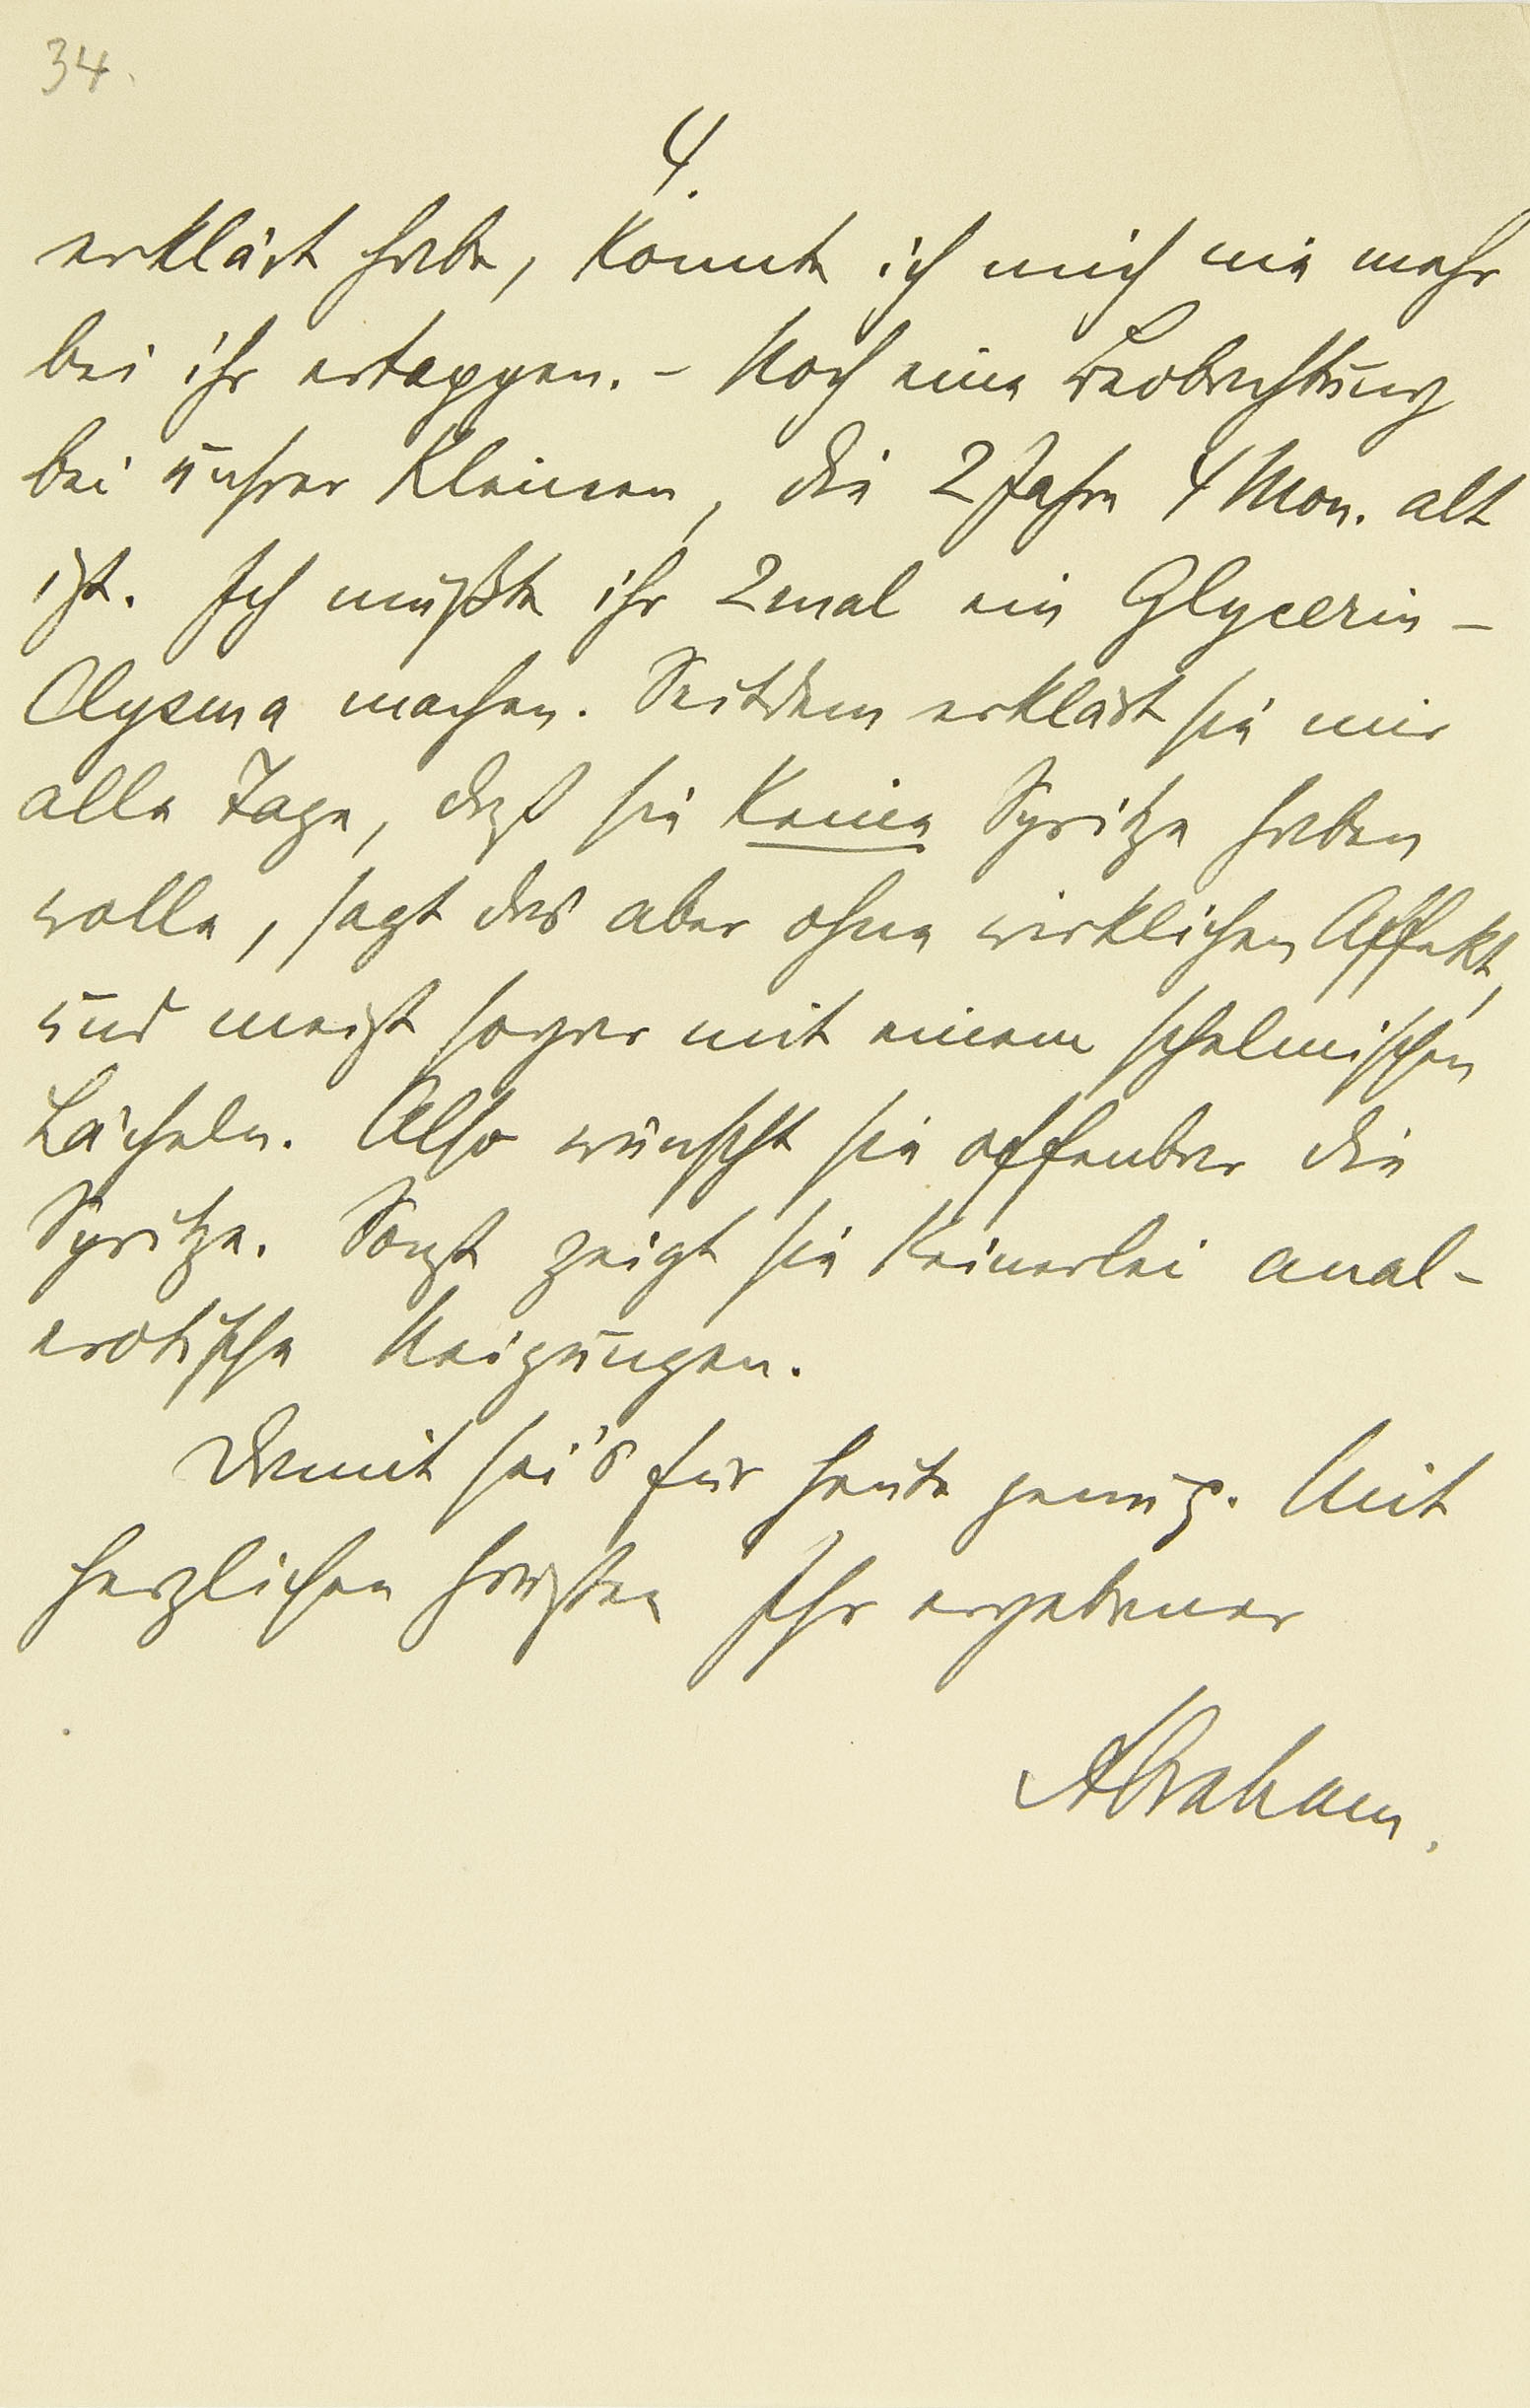 34.
4.
erklärt habe, konnte ich mich nie mehr
bei ihr ertappen. – Noch eine Beobachtung
bei unsrer Kleinen, die 2 Jahre 4 Mon. alt
ist. Ich mußte ihr 2mal ein Glycerin-
Clysma machen. Seitdem erklärt sie mir
alle Tage, daß sie keine Spritze haben
wolle, sagt das aber ohne wirklichen Affekt,
und meist sogar mit einem schelmischen
Lächeln. Also wünscht sie offenbar die
Spritze. Sonst zeigt sie keinerlei anal-
erotische Neigungen.
Damit sei's für heute genug. Mit
herzlichen Grüßen Ihr ergebener
Abraham.